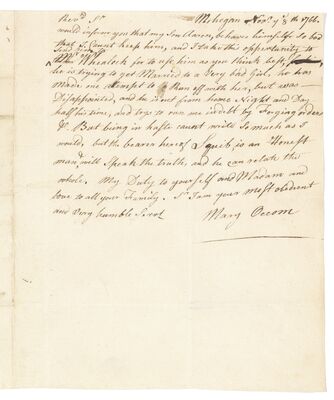 Revᵈ Sʳ Mohegan Novʳ yᵉ 8th 1766.
would inform you that my Son Aaron, behaves himself so bad
that I Canot keep him, and I take this opportunity to
Mʳ Wheelock for to use him as you think best,
he is trying to get Married to a Very bad girl, he has
made one atempt to Run off with her, but was
Disappointed, and he is out from home Night and Day
half his time, and trys to run me in debt by Forging orders
&c. But being in haste canot write So much as I
would, but the bearer hereof Squib is an Honest
man & will Speak the truth, and he can relate the
whole. My Duty to yourself and Madam and
love to all your Family. Sʳ I am your most obedient
and very humble Servᵗ Mary Occom